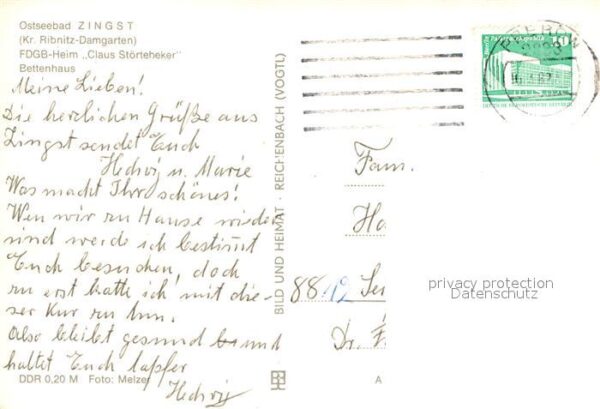 Ostseebad ZINGST
(Kr. Ribnitz-Damgarten)
FDGB-Heim „Claus Störteheker"
Bettenhaus
Meine Lieben!
Die herzlichen Grüße aus
Zingst sendet Euch
Hedwig u. Marie
Was macht Ihr schönes!
Wen wir zu Hause wieder
sind werde ich bestimmt
Euch besuchen, doch
zu erst hatte ich mit die-
ser Kur zu tun.
Also bleibt gesund und
haltet Euch tapfer
Hedwig
DDR 0,20 M Foto: Melzer
BILD UND HEIMAT · REICHENBACH (VOGTL)
A
PREROW
10
Fam.
Ha
8812 Se
Dr.
privacy protection
Datenschutz